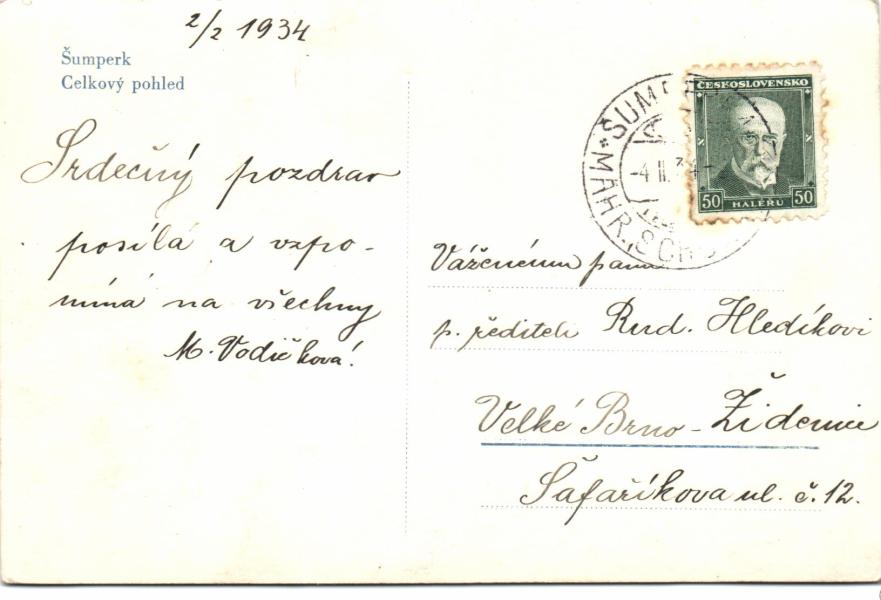 2/2 1934
Šumperk
Celkový pohled
Srdečný pozdrav
posílá a vzpo-
míná na všechny
M. Vodičková!
ČESKOSLOVENSKO
50 HALÉŘŮ 50
ŠUMP
-4.II.34-
* MÄHR. SCH
Váženému panu
p. řediteli Rud. Hledíkovi
Velké Brno - Židenice
Šafaříkova ul. č. 12.